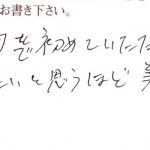 お書き下さい。
初めていたた
いと思うほど 美